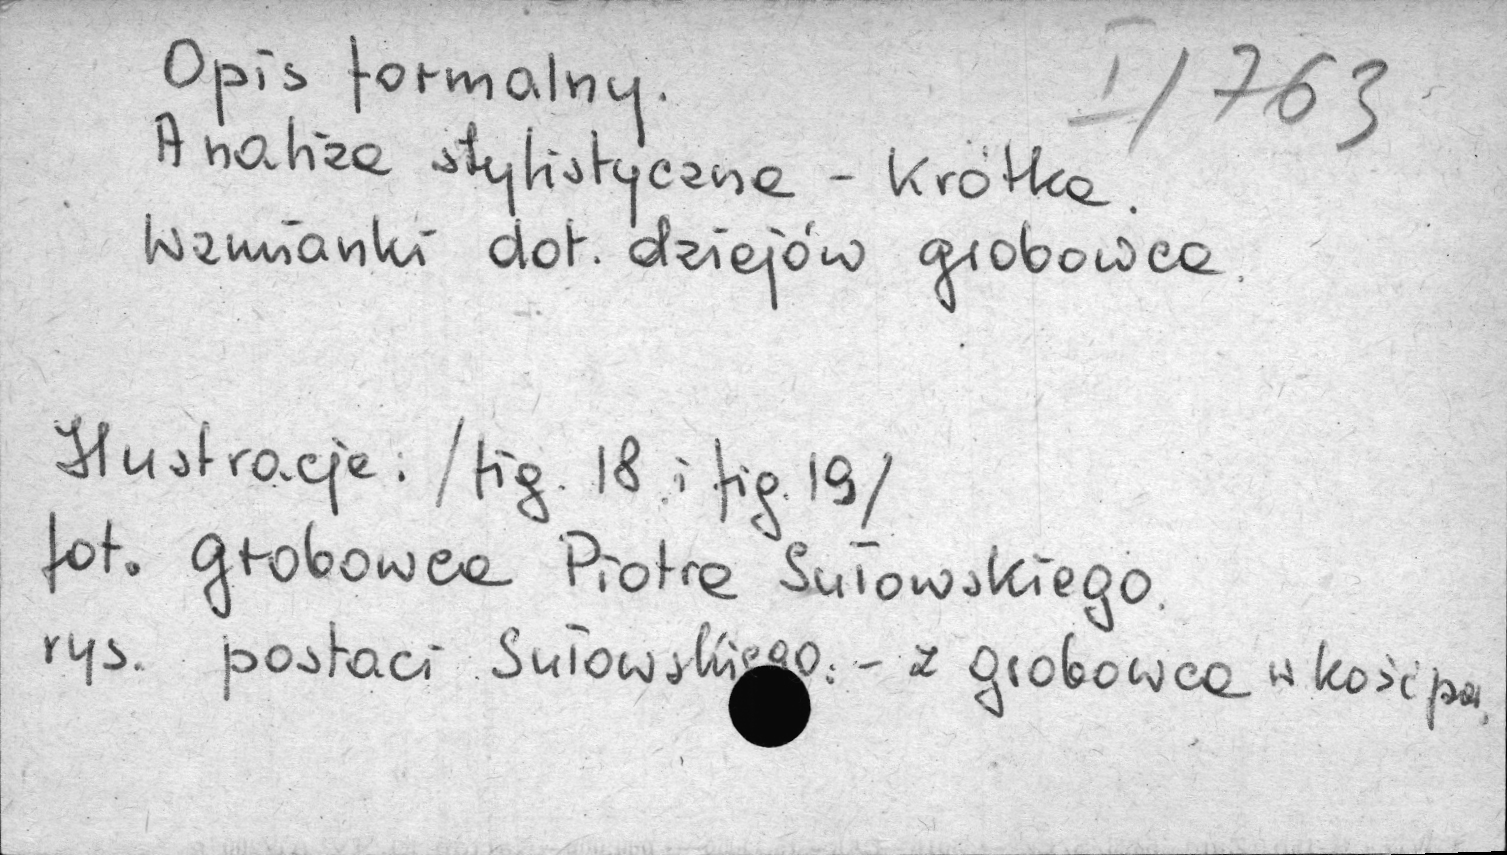 I/763
Opis formalny.
Analiza stylistyczna - krótka.
Wzmianki dot. dziejów grobowca.
Ilustracje: /fig. 18 i fig. 19/
fot. grobowca Piotra Sułowskiego.
rys. postaci Sułowskiego. - z grobowca w kośc par,